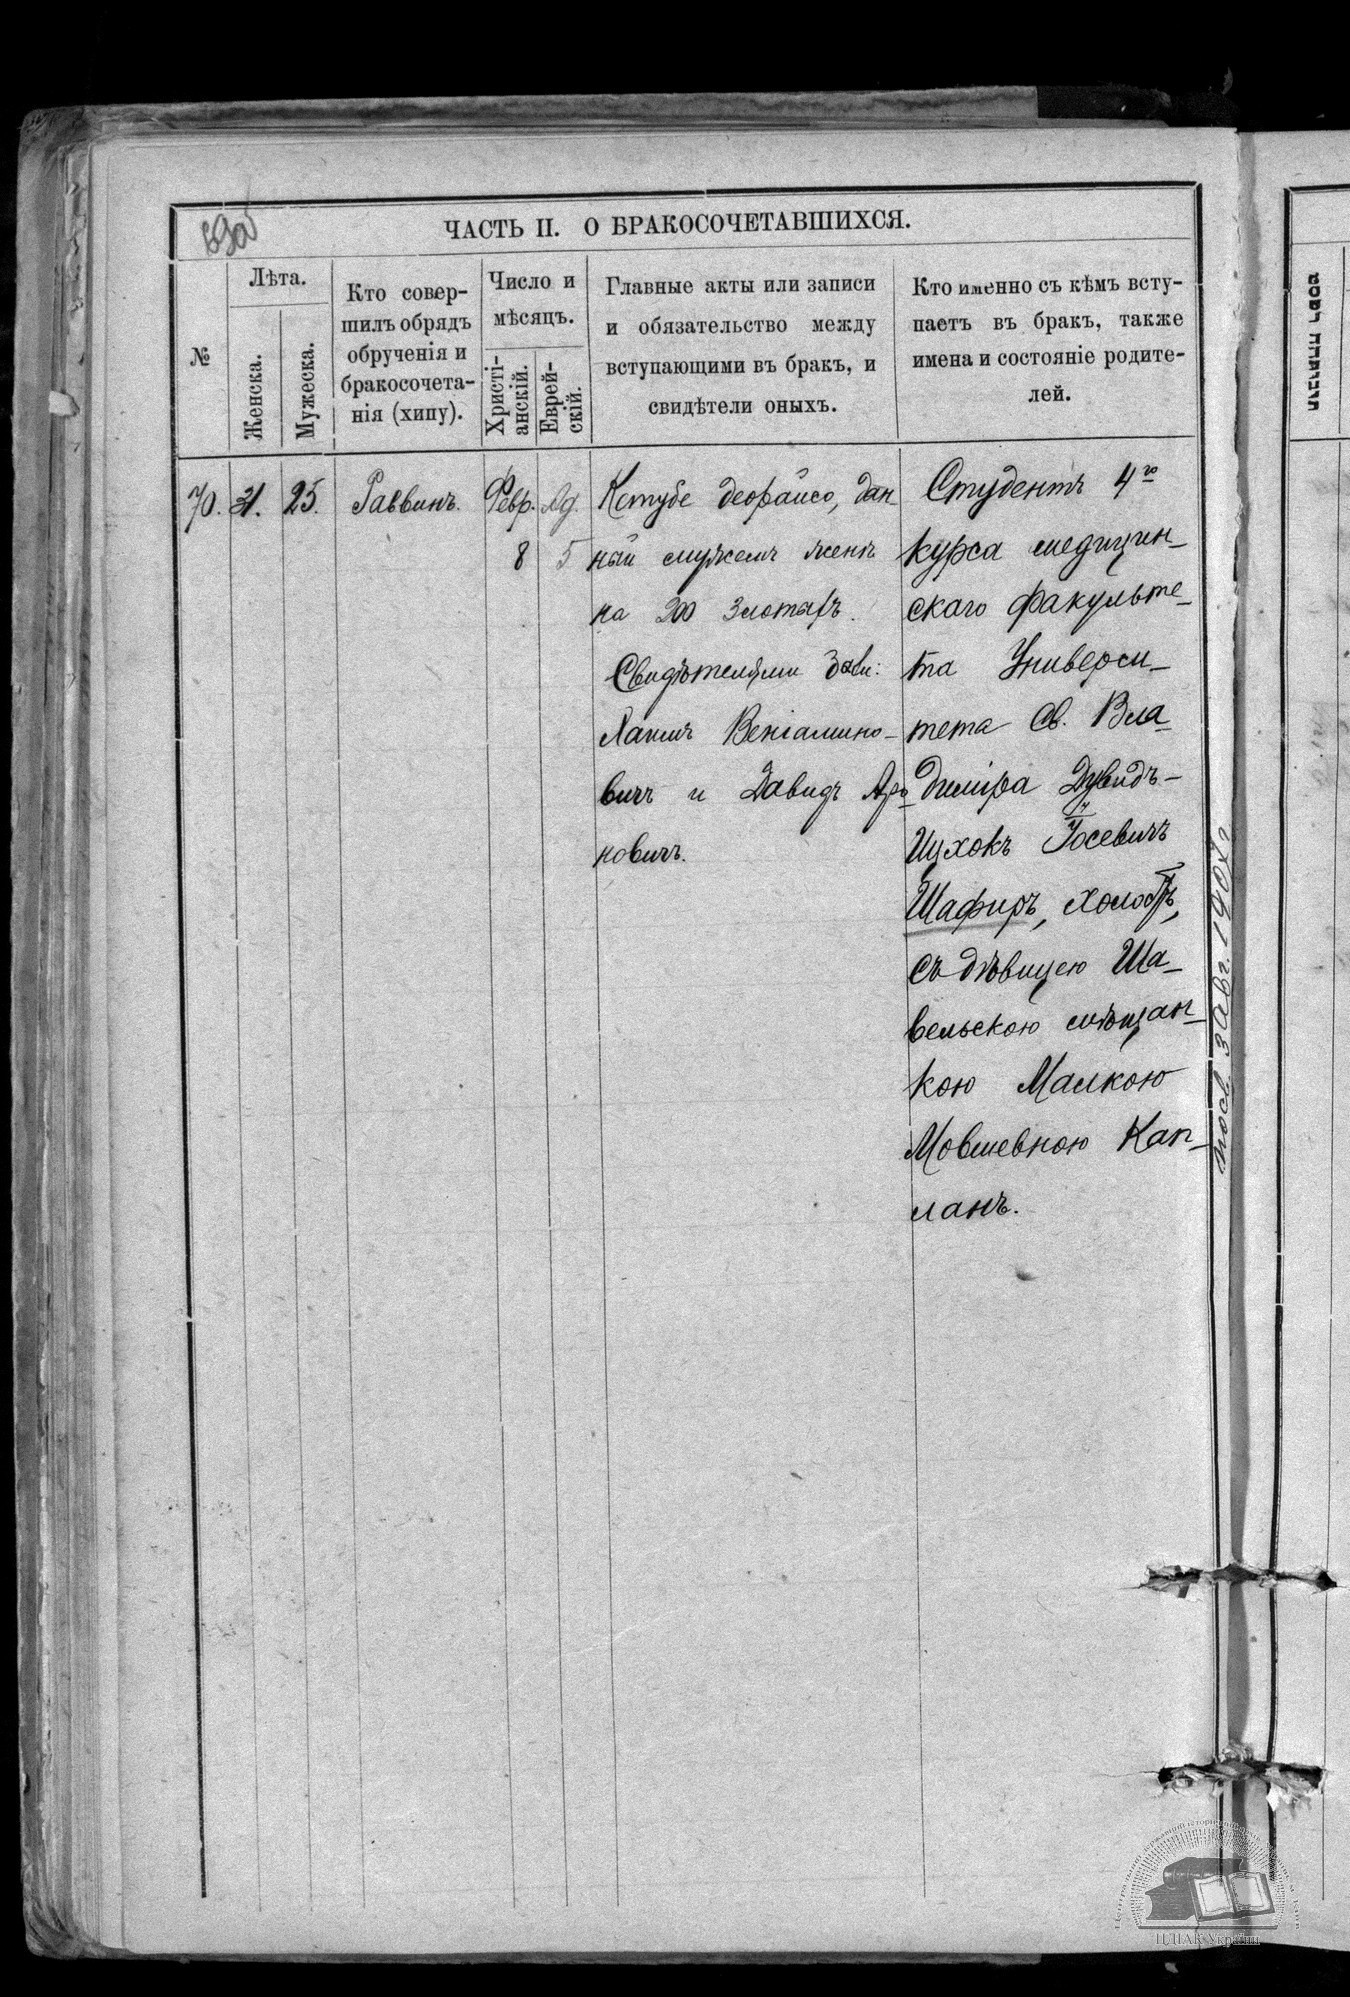 69об
ЧАСТЬ II. О БРАКОСОЧЕТАВШИХСЯ.
№
Лѣта.
Женска.
Мужеска.
Кто совер-
шилъ обрядъ
обрученія и
бракосочета-
нія (хипу).
Число и
мѣсяцъ.
Христі-
анскій.
Еврей-
скій.
Главные акты или записи
и обязательство между
вступающими въ бракъ, и
свидѣтели оныхъ.
Кто именно съ кѣмъ всту-
паетъ въ бракъ, также
имена и состояніе родите-
лей.
70.
21.
25.
Раввинъ.
Февр.
8
Ад.
5
Кетубе деорайсо, дан-
ный мужемъ женѣ
на 200 злотыхъ.
Свидѣтелями были:
Хаимъ Веніамино-
вичъ и Давидъ Аро-
новичъ.
Студентъ 4го
курса медицин-
скаго факульте-
та Универси-
тета Св. Вла-
диміра Дувидъ-
Ицхокъ Іосевичъ
Шафиръ, холостъ,
съ дѣвицею Ша-
вельскою мѣщан-
кою Малкою
Мовшевною Кап-
ланъ.
3 Авг. 1907
ЦДІАК України